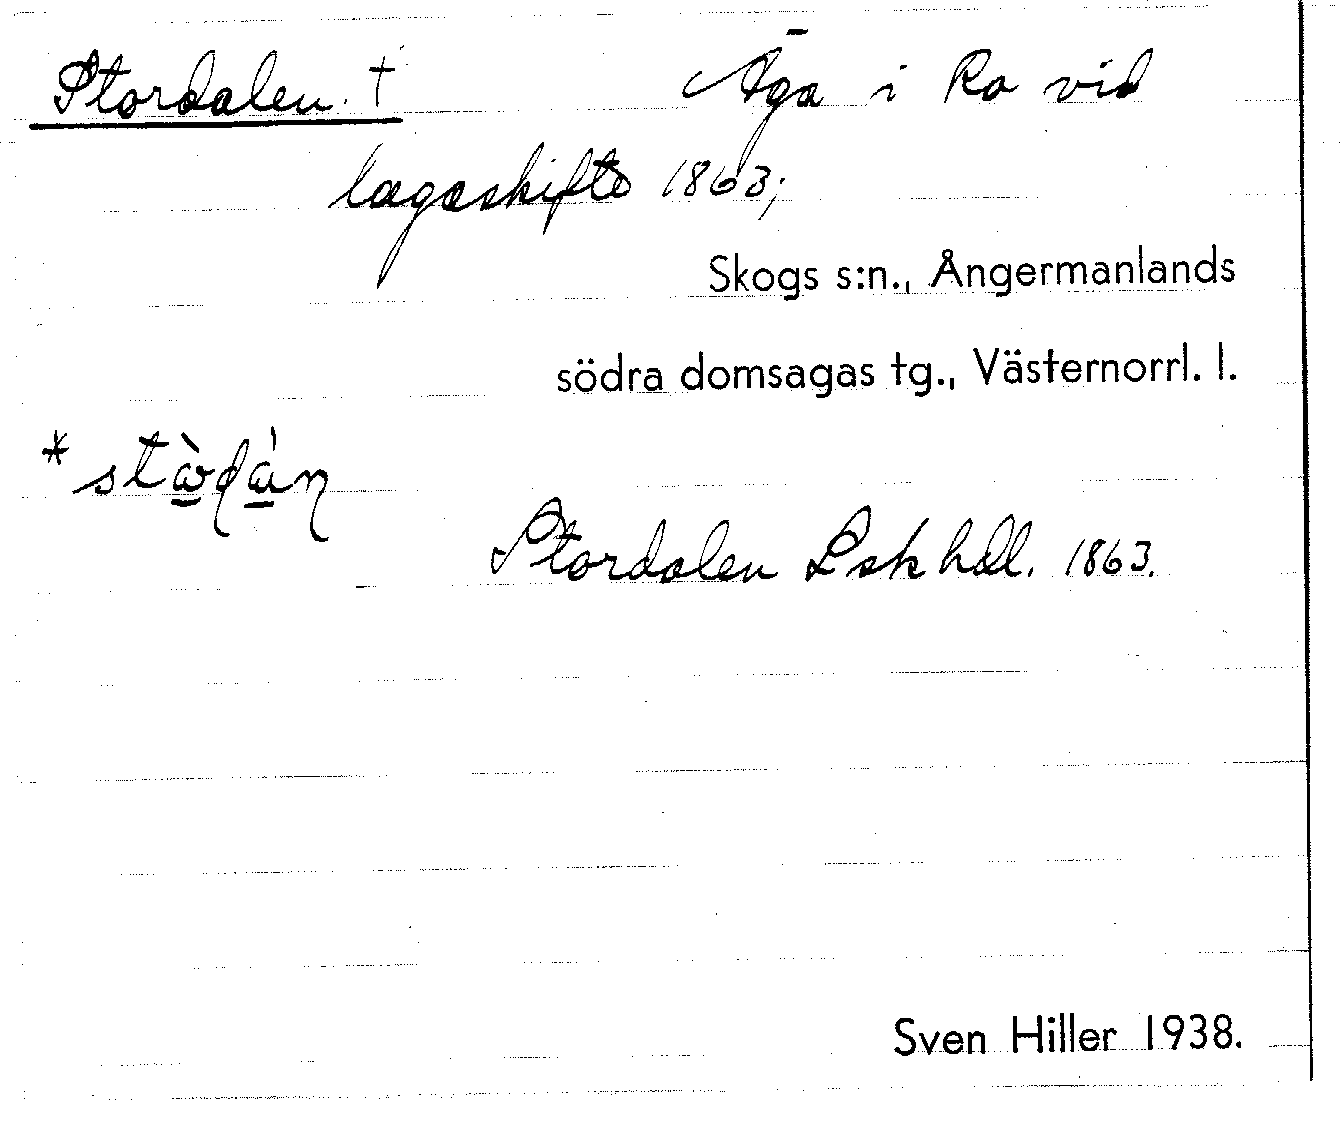 Stordalen. † Äga i Ro vid
lagaskifte 1863;
Skogs s:n., Ångermanlands
södra domsagas tg., Västernorrl. l.
Stordalen Lskhdl. 1863.
Sven Hiller 1938.